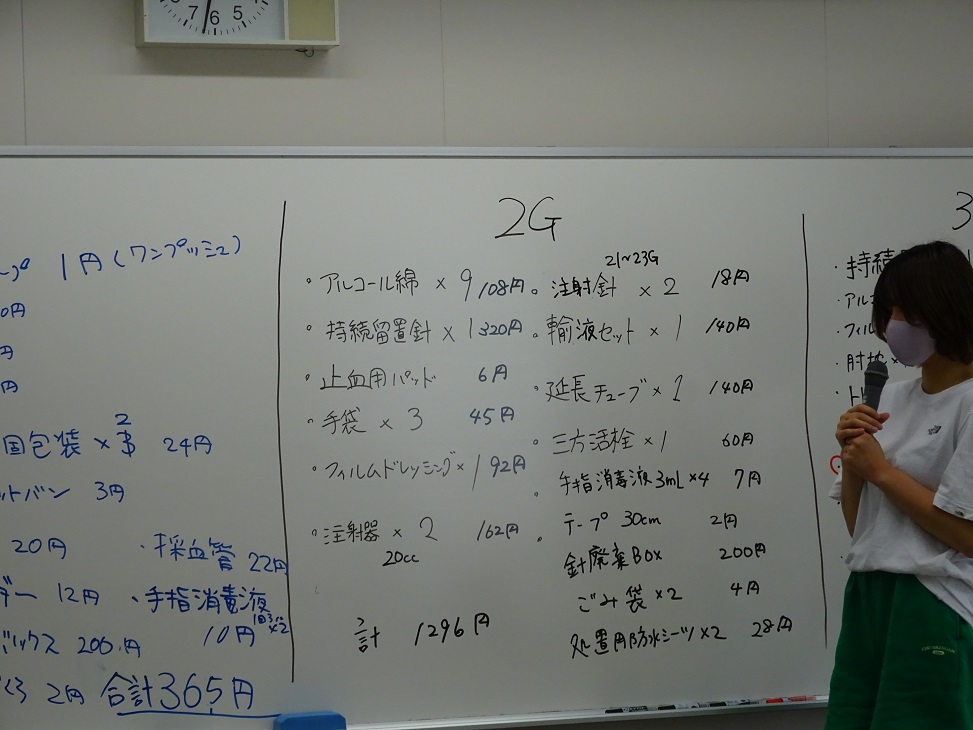 7 6 5
1円(ワンプッシュ)
0円
円
円
包装×2 24円
バン 3円
20円 ・採血管 22円
ダー 12円 ・手指消毒液
ボックス 200円 10円 ×2
2円 合計365円
2G
・アルコール綿 × 9 108円
・持続留置針 × 1 320円
・止血用パッド 6円
・手袋 × 3 45円
・フィルムドレッシング × 1 92円
・注射器 × 2 162円
20cc
計 1296円
21~23G
・注射針 × 2 18円
輸液セット × 1 140円
・延長チューブ × 1 140円
・三方活栓 × 1 60円
・手指消毒液3mL×4 7円
・テープ 30cm 2円
針廃棄Box 200円
ごみ袋×2 4円
処置用防水シーツ×2 28円
3
・持続
・アル
・フィル
・肘枕